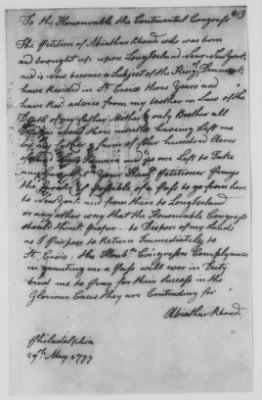 To the Honourable the Continental Congress
The Petition of Abiathar Rhoad who was born
and brought up upon Long Iseland Near New York
and is Now become a Subject of the King Denmark
have Resided in St Croix three Years and
have had advice from my brother in Law of the
Death of my father Mother & only Brother all
about three months haveing left me
a farm of four hundred Acres
of and no one Left to Take
Your Petitioner
the possible of a pass to go from here
to New York and from there to Long Iseland
or any other way that the Honourable Congress
should think proper - to Dispose of my Lands
as I purpose to Return Immediately to
St Croix - the Honble Congress Complyance
in granting me a pass will ever in Duty
bind me to pray for their Success in the
Glorious Caus they are Contending for
Abiathar Rhoad
Philadelphia
29th May 1777